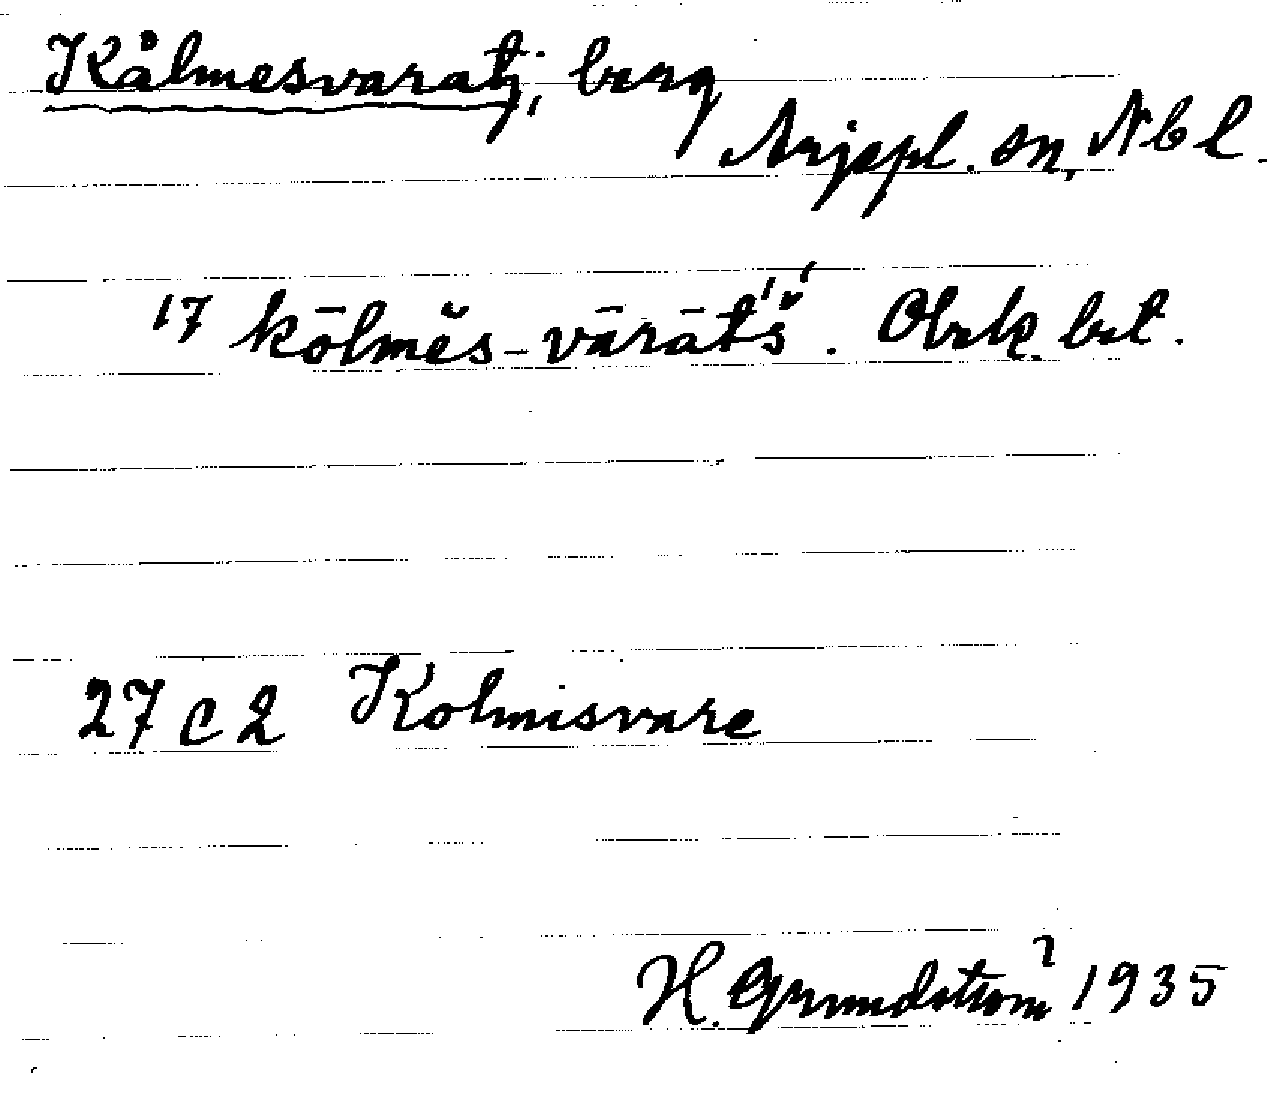 Kålmesvaratj; berg
Arjepl. sn, Nbl.
17 kōlmĕs-vārāt́š́. Obek. bet.
27 C 2 Kolmisvare
H. Grundström 1935